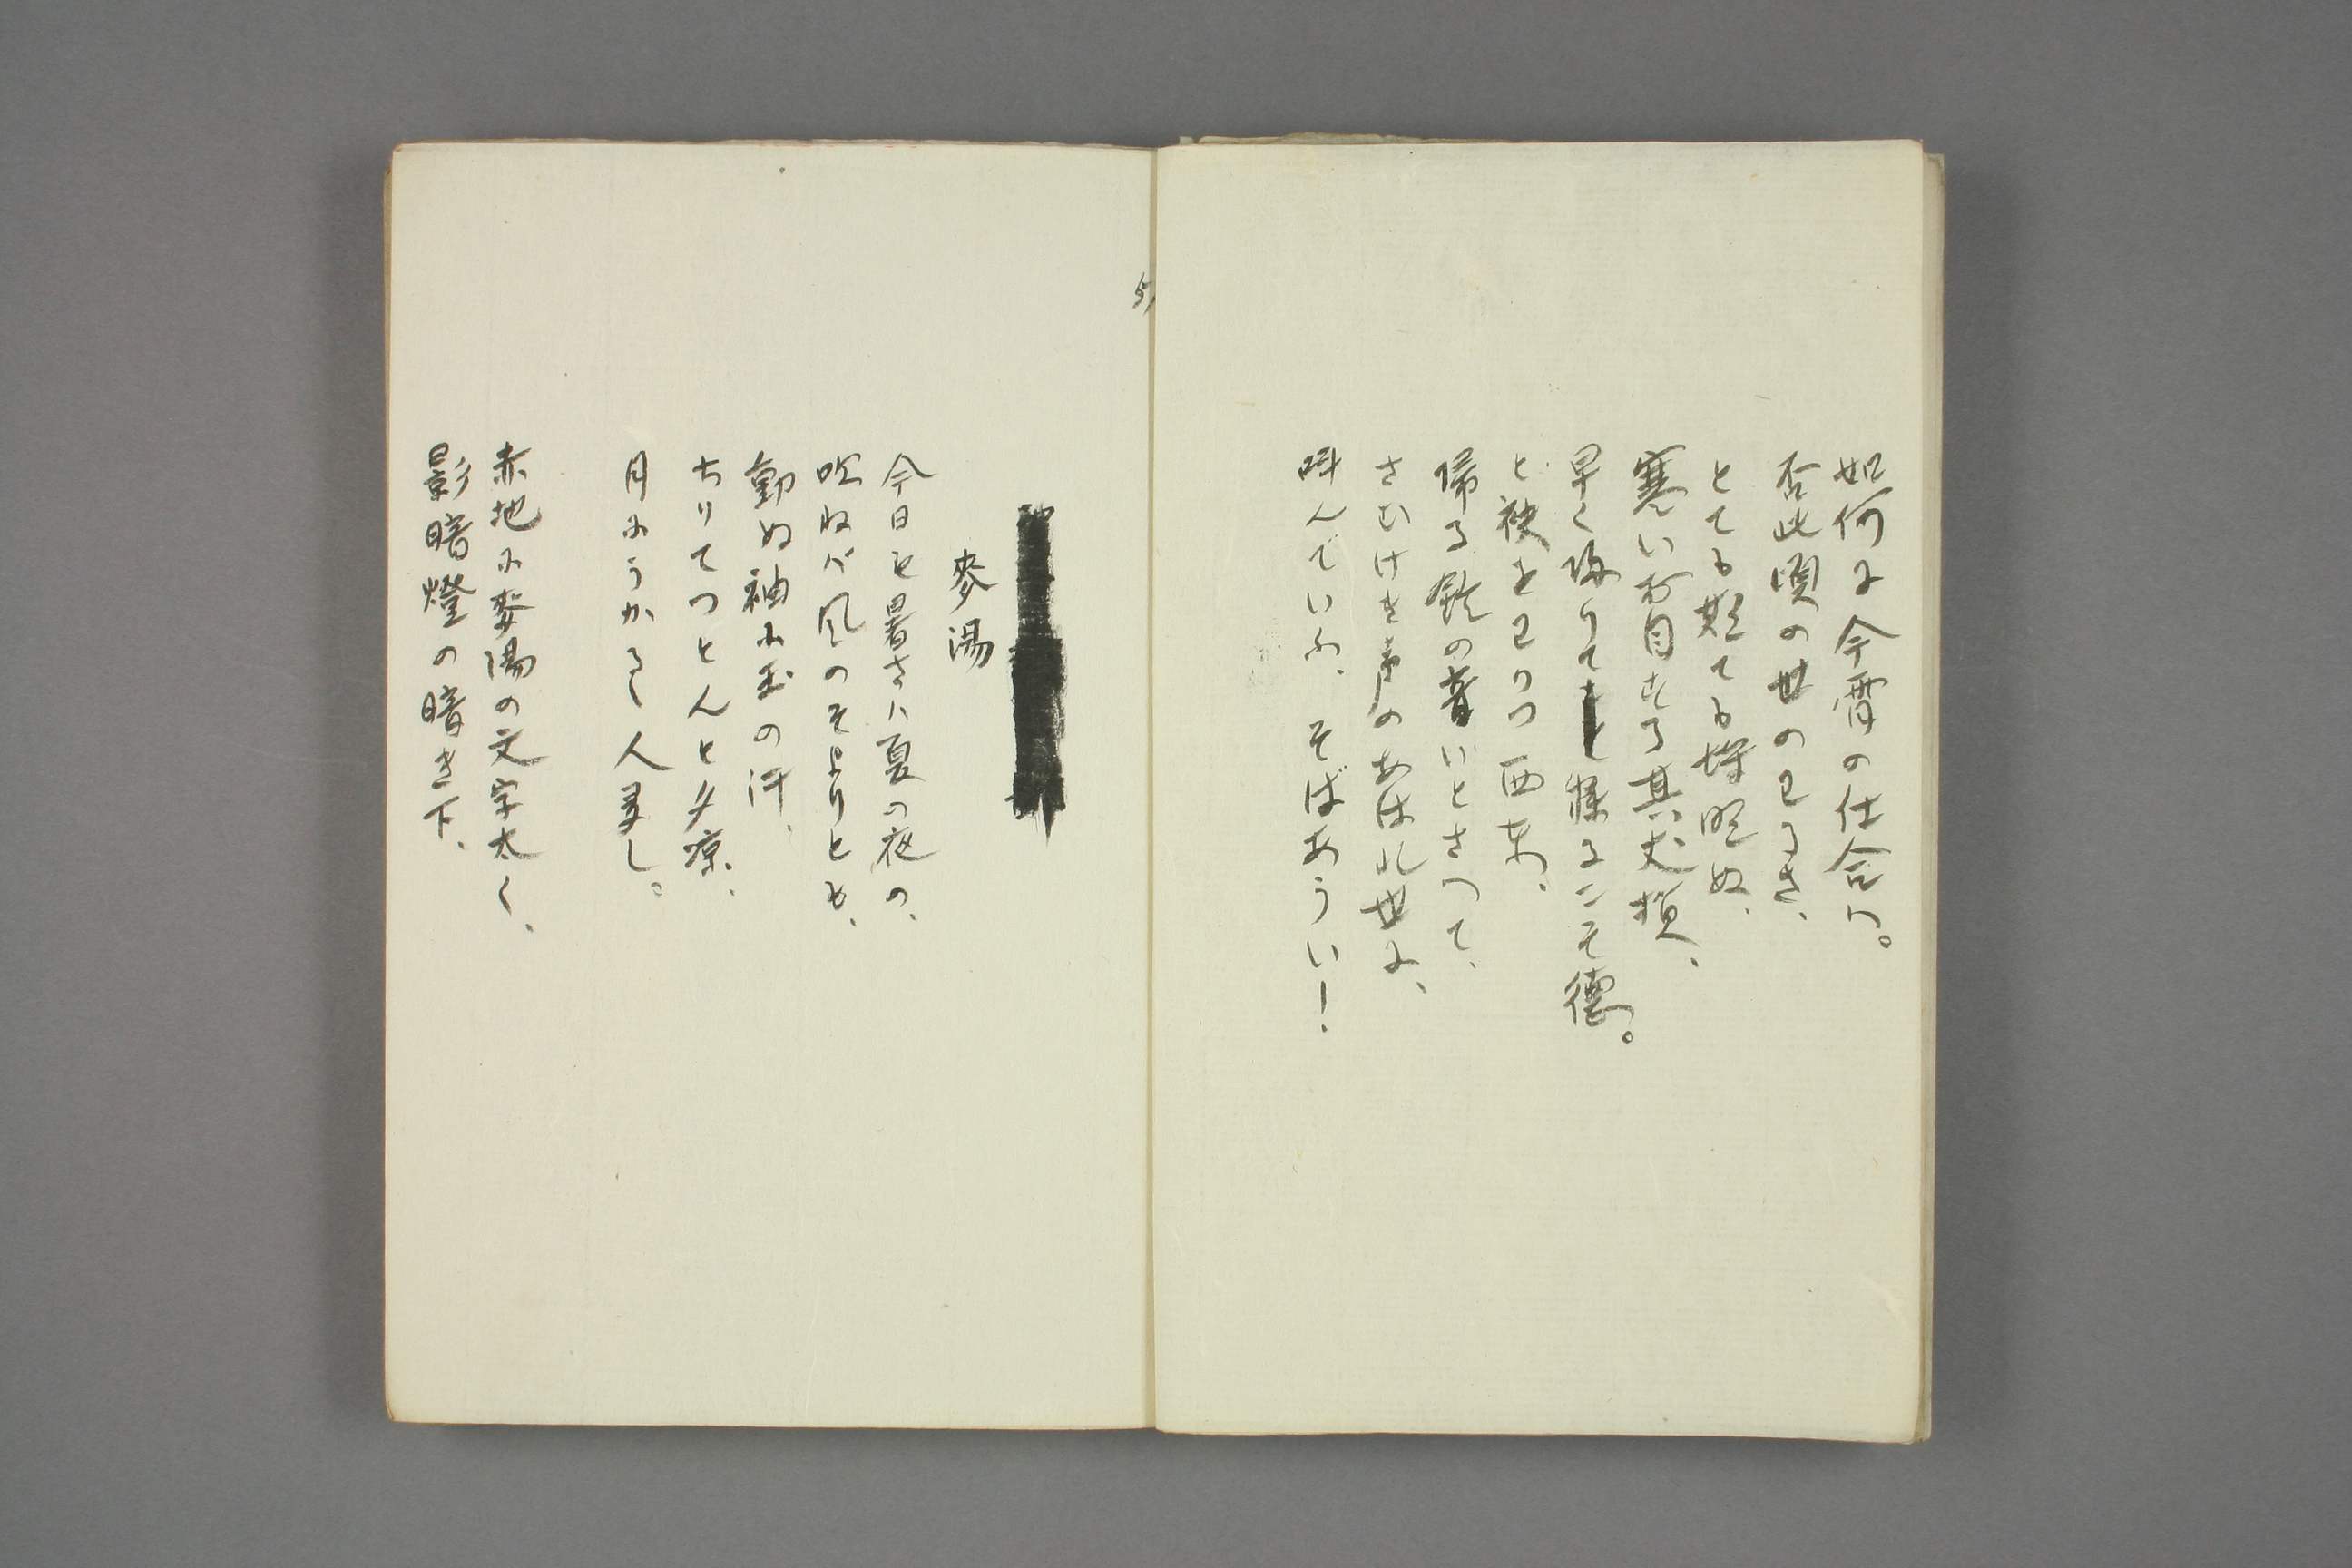 如何に今宵の仕合り。
否此頃の世のわるき、
とても超ても埒明ぬ、
寒い お目する其丈損、
早く帰りて寐るこそ徳。
と袂をわりつ西東、
帰る鈴の音いとさつて、
さむけき声のあはれ世に、
呼んでいふ、そばあうい！
麥湯
今日と暑さハ夏の夜の、
吹ねバ風のそよりとも、
動ぬ袖に玉の汗、
ちりてつとんと夕涼、
月にうかるゝ人多し。
赤地に麥湯の文字太く、
影暗燈の暗き下、